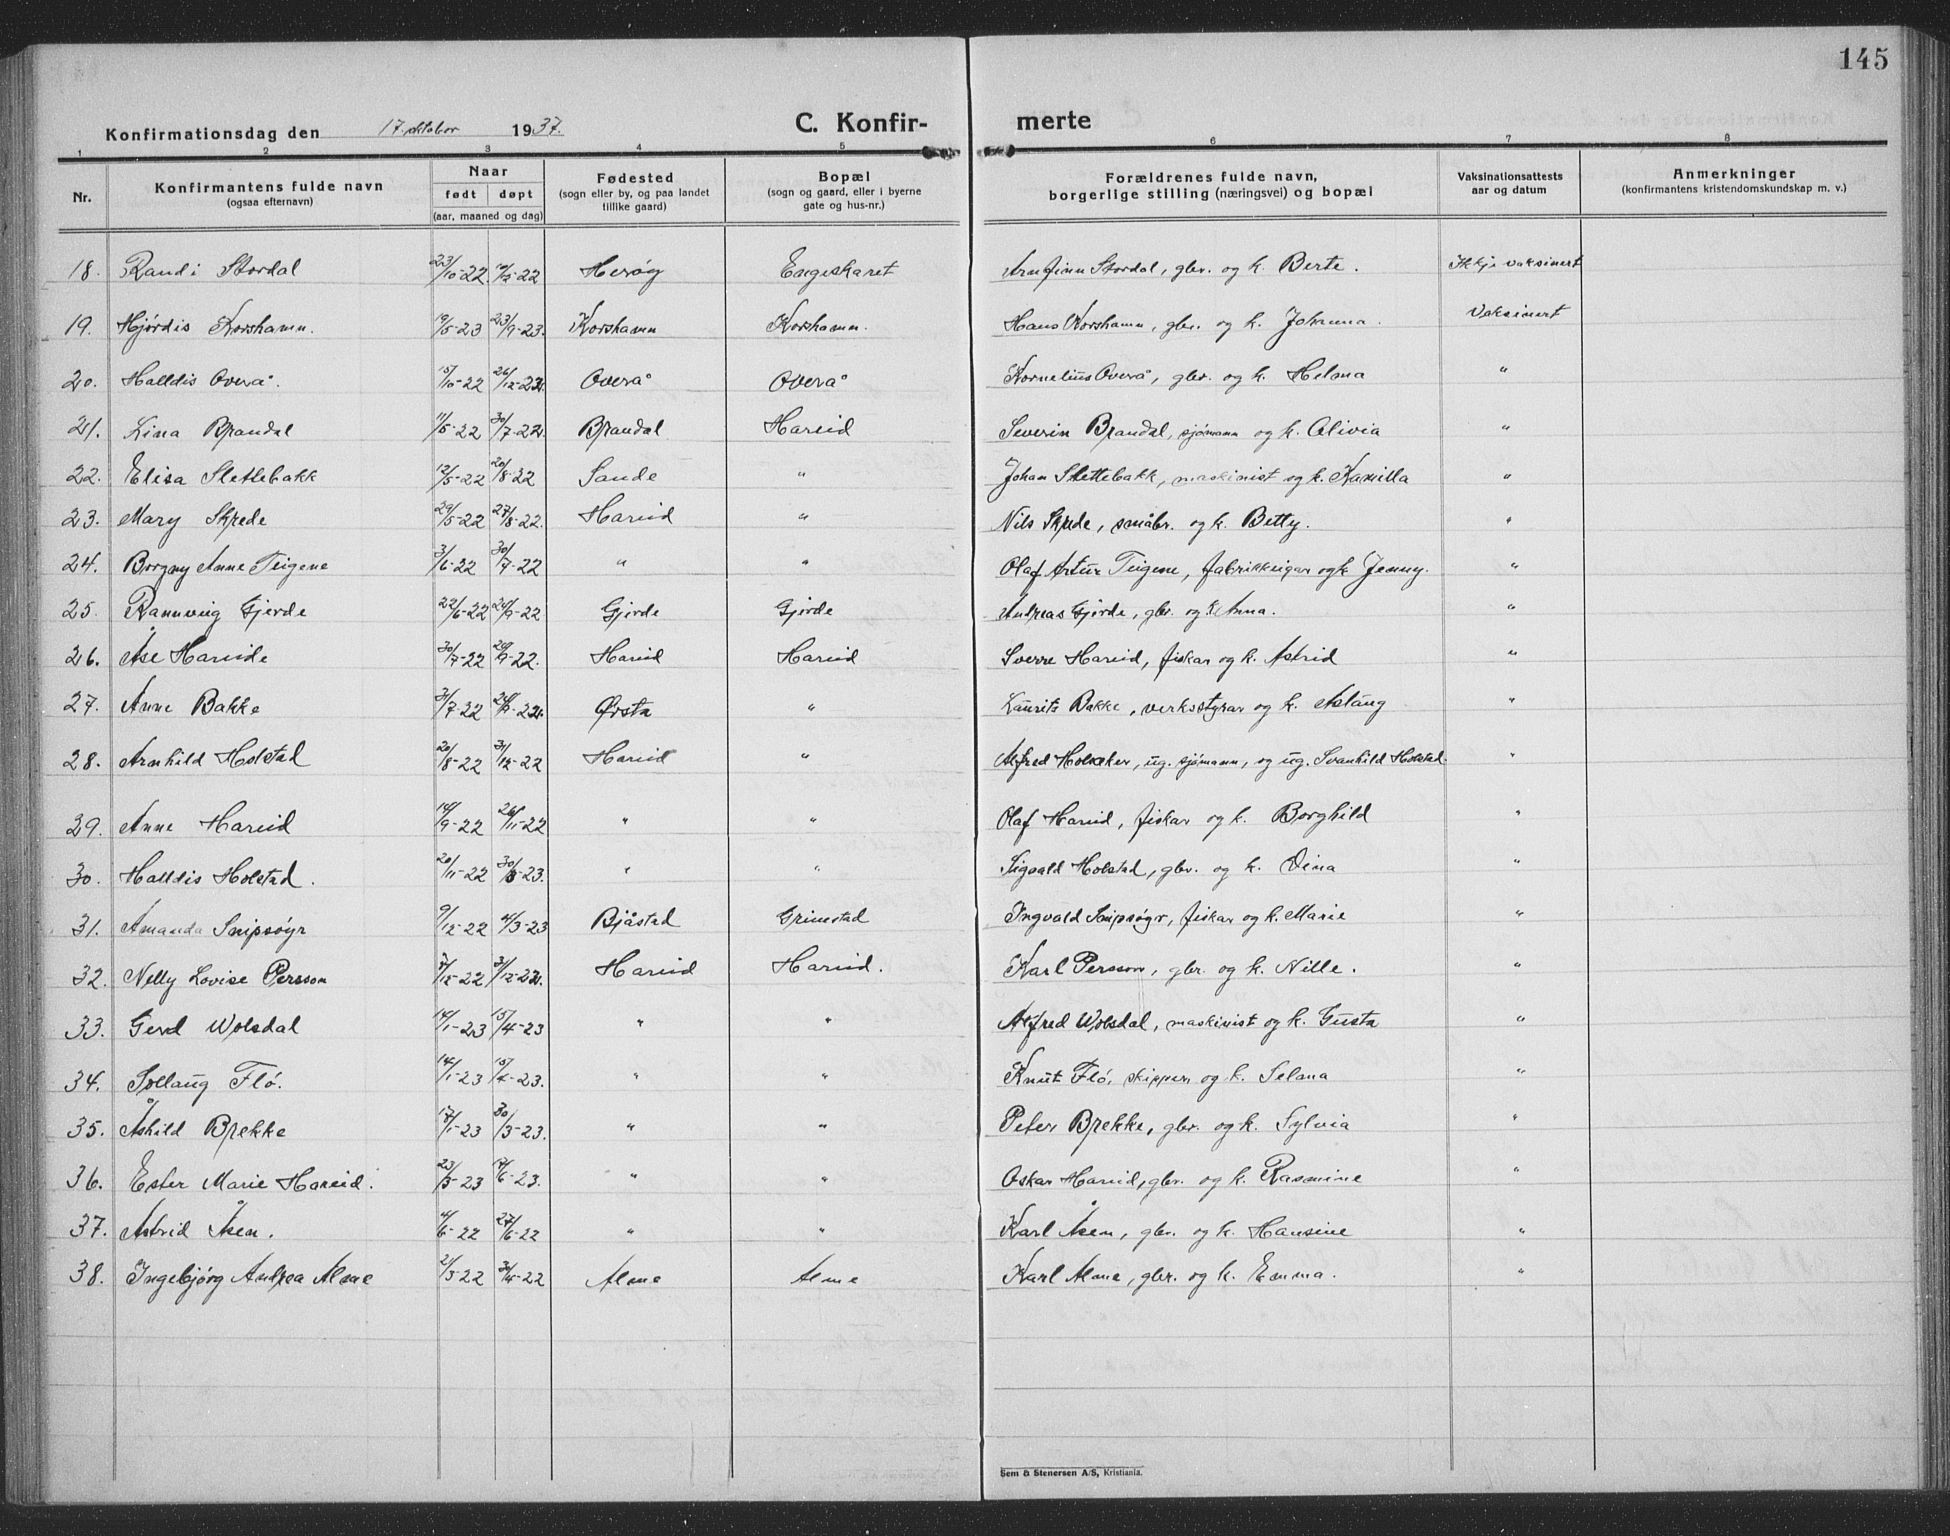 145
Konfirmationsdag den 17. oktober 1937. C. Konfirmerte
1 2 3 4 5 6 7 8
Nr. Konfirmantens fulde navn (ogsaa efternavn) Naar født døpt (aar, maaned og dag) Fødested (sogn eller by, og paa landet tillike gaard) Bopæl (sogn og gaard, eller i byerne gate og hus-nr.) Forældrenes fulde navn, borgerlige stilling (næringsvei) og bopæl Vaksinationsattests aar og datum Anmerkninger (konfirmantens kristendomskundskap m. v.)
18. Randi Stordal 23/10-22. -22 Herøy Engeskaret Arnfinn Stordal, gbr. og k. Berte. Ikkje vaksinert
19. Hjørdis Korshamn. 19/5-23 23/9-23. Korshamn Korshamn. Hans Korshamn, gbr. og k. Johanna. Vaksinert
20. Halldis Overå. 15/10-22 26/12-22. Overå Overå Kornelius Overå, gbr. og k. Helena "
21. Lina Brandal 11/5-22 30/7-22. Brandal Hareid Severin Brandal, sjømann og k. Olivia "
22. Elisa Slettebakk 12/5-22 20/8-22 Sande " Johan Slettebakk, maskinist og k. Kamilla "
23. Mary Skrede 29/5-22 27/8-22. Hareid " Nils Skrede, småbr. og k. Betty. "
24. Borgny Anne Teigene 3/6-22 30/7-22 " " Olaf Artur Teigene, fabrikkeigar og k. Jenny. "
25. Rannveig Gjerde 22/6-22 24/9-22 Gjerde Gjerde Andreas Gjerde, gbr. og k. Anna. "
26. Åse Hareide 30/7-22 -22. Hareid Hareid Sverre Hareid, fiskar og k. Astrid "
27. Anne Bakke 31/7-22 24/9-22. Ørsta " Laurits Bakke, verksstyrar og k. Aslaug "
28. Arnhild Holstad 20/8-22 31/12-22 Hareid " Alfred Holsæker, ug. sjømann, og ug. Svanhild Holstad. "
29. Anne Hareid 14/9-22 26/11-22 " " Olaf Hareid, fiskar og k. Borghild "
30. Halldis Holstad. 20/11-22 30/3-23. " " Sigvald Holstad, gbr. og k. Dina "
31. Amanda Snipsøyr 9/12-22 4/3-23 Bjåstad Grimstad Ingvald Snipsøyr, fiskar og k. Marie "
32. Nelly Lovise Persson 7/12-22 31/12-22. Hareid Hareid. Karl Persson, gbr. og k. Nille. "
33. Gerd Wolsdal 14/1-23 15/4-23 " " Alfred Wolsdal, maskinist og k. Gusta "
34. Sollaug Flø. 14/1-23 15/4-23. " " Knut Flø, skipper og k. Selana "
35. Åshild Brekke 17/1-23 30/3-23. " " Peter Brekke, gbr. og k. Sylvia "
36. Ester Marie Hareid. 23/3-23 17/6-23. " " Oskar Hareid, gbr. og k. Rasmine "
37. Astrid Åsen. 4/6-22 27/6-22 " " Karl Åsen, gbr. og k. Hansine "
38. Ingebjørg Andrea Alme 2/3-22 -22 Alme Alme Karl Alme, gbr. og k. Emma. "
Sem & Stenersen A/S, Kristiania.